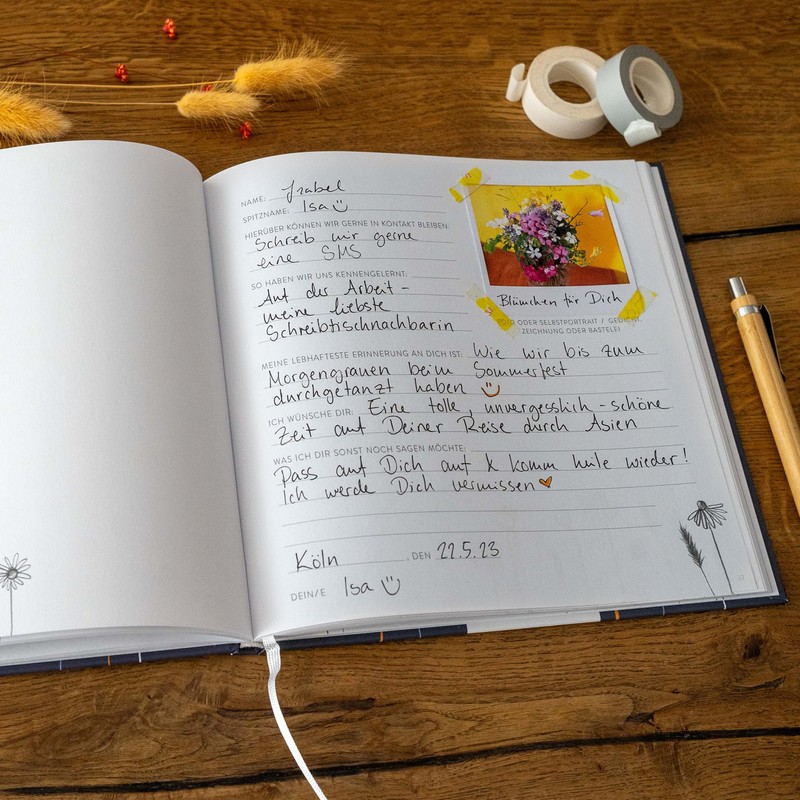 NAME: Isabel
SPITZNAME: Isa
HIERÜBER KÖNNEN WIR GERNE IN KONTAKT BLEIBEN:
Schreib mir gerne
eine SMS
SO HABEN WIR UNS KENNENGELERNT:
Auf der Arbeit -
meine liebste
Schreibtischnachbarin
Blümchen für Dich
ODER SELBSTPORTRAIT / GEDICHT,
ZEICHNUNG ODER BASTELEI
MEINE LEBHAFTESTE ERINNERUNG AN DICH IST: Wie wir bis zum
Morgengrauen beim Sommerfest
durchgetanzt haben
ICH WÜNSCHE DIR: Eine tolle, unvergesslich-schöne
Zeit auf Deiner Reise durch Asien
WAS ICH DIR SONST NOCH SAGEN MÖCHTE:
Pass auf Dich auf & komm heile wieder!
Ich werde Dich vermissen
Köln, DEN 22.5.23
DEIN/E Isa